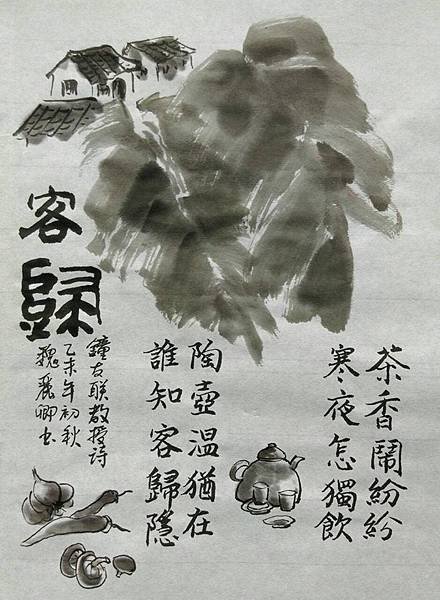 茶香鬧紛紛
寒夜怎獨飲
陶壺溫猶在
誰知客歸隱
客歸
鐘友聯教授詩
乙未年初秋
魏麗卿書